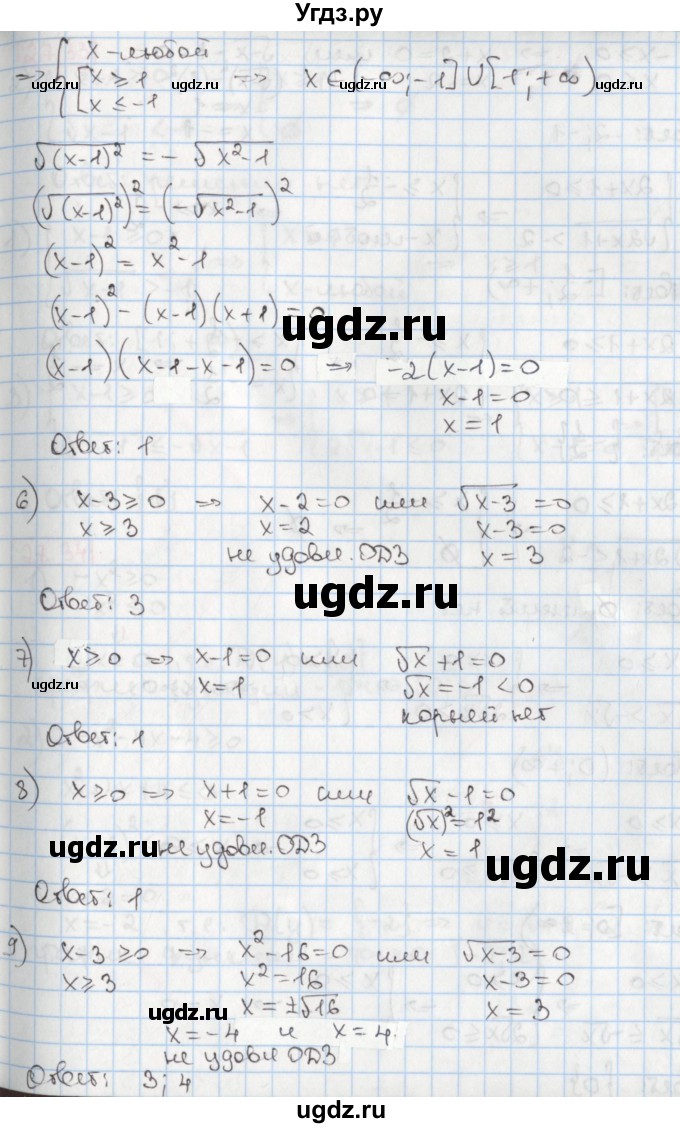 Угдз.ру
=> { x - любой
[ x ≥ 1
x ≤ -1
→ x ∈ (-∞; -1] ∪ [1; +∞)
ugdz.ru ugdz.ru ugdz.ru
√(x-1)² = - √x²-1
(√(x-1)²)² = (-√x²-1)²
(x-1)² = x²-1
(x-1)² - (x-1)(x+1) = 0
ugdz.ru
(x-1)(x-1-x-1) = 0 => -2(x-1) = 0
x-1 = 0
x = 1
Ответ: 1
6) x-3 ≥ 0 => x-2 = 0 или √x-3 = 0
x ≥ 3 x = 2 x-3 = 0
не удовл. ОДЗ x = 3
ugdz.ru
Ответ: 3
7) x ≥ 0 => x-1 = 0 или √x + 1 = 0
ugdz.ru x = 1 √x = -1 < 0
корней нет
Ответ: 1
8) x ≥ 0 => x+1 = 0 или √x - 1 = 0
x = -1 (√x)² = 1²
ugdz.ru не удовл. ОДЗ x = 1
ugdz.ru
Ответ: 1
9) x-3 ≥ 0 => x²-16 = 0 или √x-3 = 0
x ≥ 3 x² = 16 x-3 = 0
x = ±√16 x = 3
ugdz.ru ugdz.ru
x = -4 и x = 4.
не удовл ОДЗ
Ответ: 3; 4
ugdz.ru